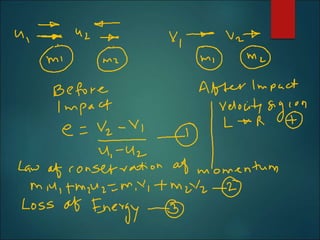 u1 u2 V1 V2
m1 m2 m1 m2
Before Impact
After Impact
Velocity sign
L → R (+)
e = V2 - V1 / u1 - u2 — 1
Law of conservation of momentum
m1u1 + m2u2 = m1V1 + m2V2 — 2
Loss of Energy — 3